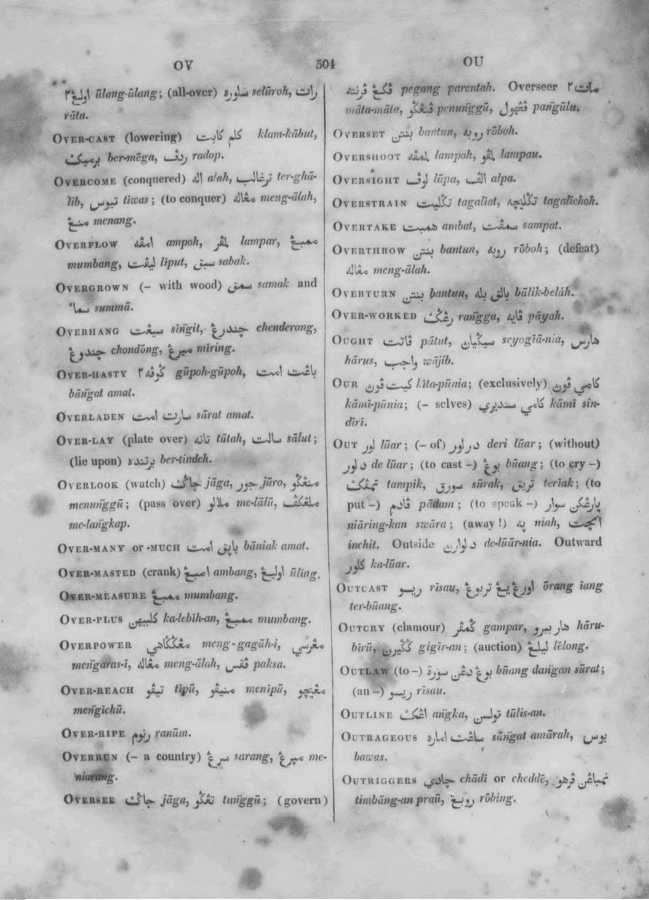 OV 504 OU
اولڠ۲ ūlang-ūlang; (all-over) سلوره selūroh, رات
rāta.
OVER-CAST (lowering) كلم كابت klam-kābut,
برميݢ ber-mēga, ردف radop.
OVERCOME (conquered) اله alah, ترغالب ter-ghā-
lib, تيوس tiwas; (to conquer) مڠاله meng-ālah,
منڠ menang.
OVERFLOW امڤه ampoh, لمڤر lampar, ممبڠ
mumbang, ليڤت liput, سبق sabak.
OVERGROWN (– with wood) سمق samak and
سما summā.
OVERHANG سيڠت sīngit, چندرڠ chenderong,
چندوڠ chondōng, ميرڠ mīring.
OVER-HASTY ݢوڤه۲ gūpoh-gūpoh, باڠت امت
bāngat amat.
OVERLADEN سارت امت sārat amat.
OVER-LAY (plate over) تاته tātah, سالت sālut;
(lie upon) برتنده ber-tindeh.
OVERLOOK (watch) جاݢ jāga, جورو jūro, منڠݢو
menunggū; (pass over) ملالو me-lālū, ملڠكڤ
me-langkap.
OVER-MANY OR -MUCH باپق امت bāniak amat.
OVER-MASTED (crank) امبڠ ambang, اوليڠ ūling.
OVER-MEASURE ممبڠ mumbang.
OVER-PLUS كلبيهن ka-lebīh-an, ممبڠ mumbang.
OVERPOWER مڠݢاهي meng-gagāh-i, مڠرسي
mengaras-i, مڠاله meng-ālah, ڤقس paksa.
OVER-REACH تيڤو tīpū, منيڤو menīpū, مڠيچو
mengichū.
OVER-RIPE رنوم ranūm.
OVERRUN (– a country) سرڠ sarang, مپرڠ me-
niarang.
OVERSEE جاݢ jāga, تڠݢو tunggū; (govern)
ڤݢڠ ڤرنته pegang parentah. Overseer مات۲
māta-māta, ڤنڠݢو penunggū, ڤڠهول pangūlu.
OVERSET بنتن bantun, روبه rōboh.
OVERSHOOT لمڤه lampah, لمڤو lampau.
OVERSIGHT لوڤ lūpa, الڤ alpa.
OVERSTRAIN تݢليت tagaliat, تݢليچه tagalichoh.
OVERTAKE همبت ambat, سمڤت sampat.
OVERTHROW بنتن bantun, روبه rōboh; (defeat)
مڠاله meng-ālah.
OVERTURN بنتن bantun, بالق بله bālik-belāh.
OVER-WORKED رڠݢ rangga, ڤايه pāyah.
OUGHT ڤاتت pātut, سيݢيان seyogiā-nia, هارس
hārus, واجب wājib.
OUR كيت ڤون kīta-pūnia; (exclusively) كامي ڤون
kāmī-pūnia; (– selves) كامي سنديري kāmī sin-
dīri.
OUT لور lūar; (– of) در لور deri lūar; (without)
د لور de lūar; (to cast –) بوڠ būang; (to cry –)
تمڤيك tampik, سورق sūrak, تريق teriak; (to
put –) ڤادم pādam; (to speak –) پارڠكن سوار
niāring-kan swāra; (away!) په niah, انچت
inchit. Outside د لوارن de-lūār-nia. Outward
كلور ka-lūar.
OUTCAST ريسو rīsau, اورڠ يڠ تربوڠ ōrang iang
ter-būang.
OUTCRY (clamour) ݢمڤر gampar, هار بيرو hāru-
bīrū, ݢݢيرن gigīr-an; (auction) ليلڠ lēlong.
OUTLAW (to –) بوڠ دڠن سورة būang dangan sūrat;
(an –) ريسو rīsau.
OUTLINE اڠك angka, تولسن tūlis-an.
OUTRAGEOUS ساڠت اماره sāngat amārah, بوس
bawas.
OUTRIGGERS چادي chādi or cheddē, تمباڠن ڤرهو
timbāng-an praū, روبيڠ rōbing.